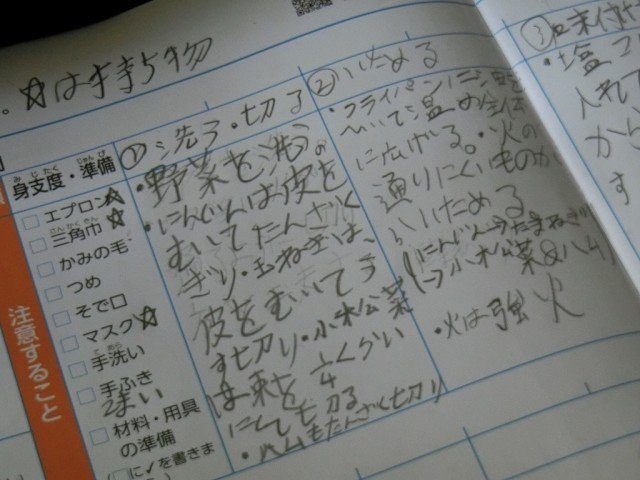 ☆は持ち物
身支度・準備
みじたく じゅんび
エプロン☆
三角巾☆
さんかくきん
かみの毛
つめ
そで口
マスク☆
手洗い
てあら
手ふき
材料・用具
の準備
に✓を書きま
注意すること
①洗う・切る
・野菜を洗う。
・にんじんは皮を
むいてたんざく
ぎり・玉ねぎは、
皮をむいてう
す切り・小松菜
は束を1/4くらい
にして切る
・ハムもたんざく切り
②いためる
・フライパンに油を
ひいて温め全体
に広げる。・火の
通りにくいものか
らいためる
(にんじん→たまねぎ
→小松菜&ハム)
・火は強火
③味付け
・塩こ
入れて
から
す